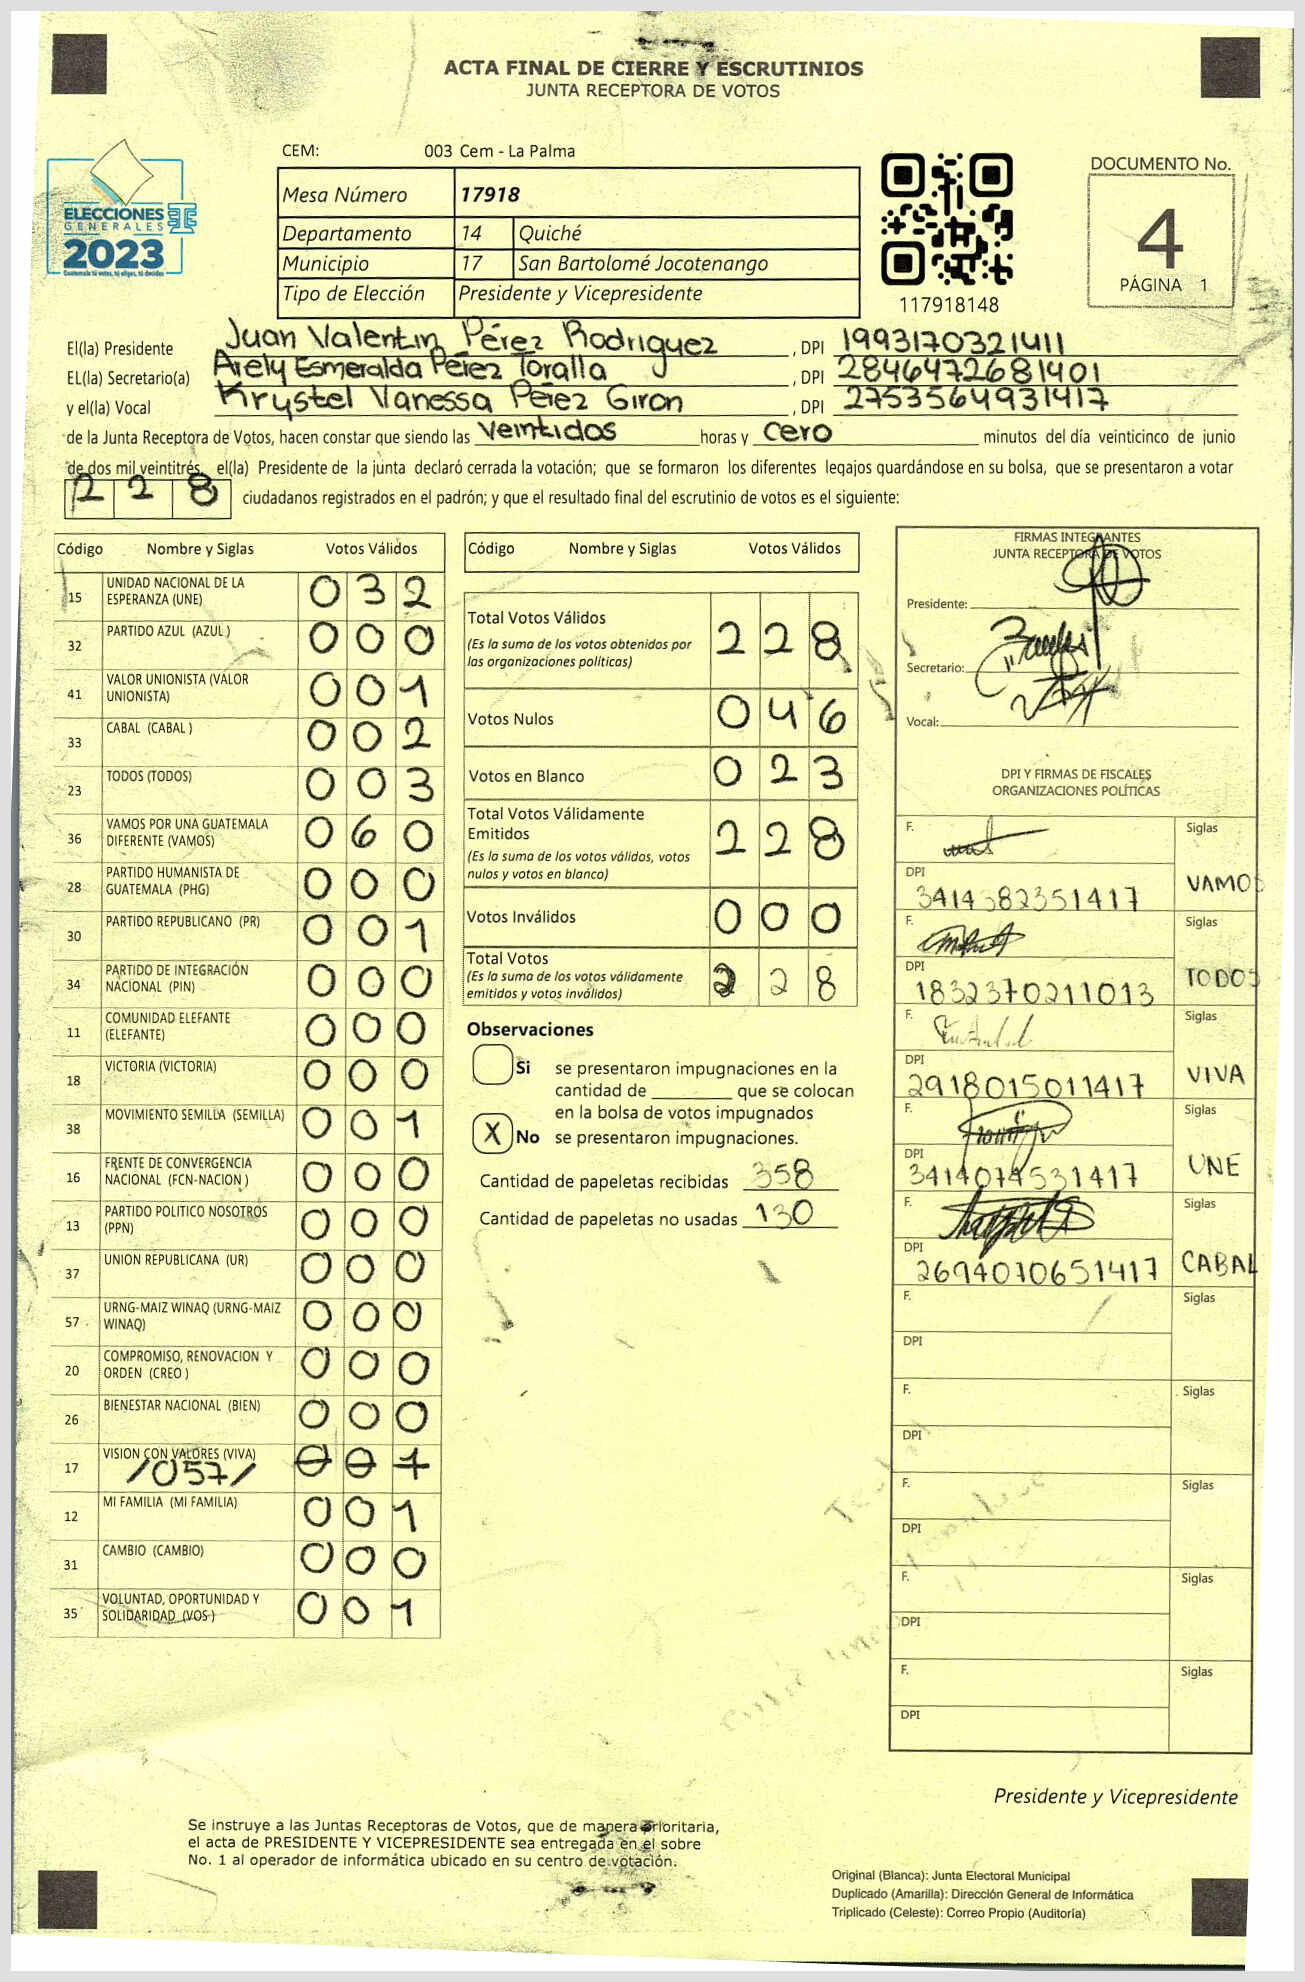 ACTA FINAL DE CIERRE Y ESCRUTINIOS
JUNTA RECEPTORA DE VOTOS
ELECCIONES
GENERALES
2023
Guatemala tú votas, tú eliges, tú decides
CEM: 003 Cem - La Palma
Mesa Número 17918
Departamento 14 Quiché
Municipio 17 San Bartolomé Jocotenango
Tipo de Elección Presidente y Vicepresidente
117918148
DOCUMENTO No.
4
PÁGINA 1
El(la) Presidente Juan Valentin Pérez Rodriguez , DPI 1993170321411
EL(la) Secretario(a) Arely Esmeralda Pérez Toralla , DPI 2846472681401
y el(la) Vocal Krystel Vanessa Pérez Giron , DPI 2753564931417
de la Junta Receptora de Votos, hacen constar que siendo las veintidos horas y cero minutos del día veinticinco de junio
de dos mil veintitrés, el(la) Presidente de la junta declaró cerrada la votación; que se formaron los diferentes legajos guardándose en su bolsa, que se presentaron a votar
228 ciudadanos registrados en el padrón; y que el resultado final del escrutinio de votos es el siguiente:
Código Nombre y Siglas Votos Válidos
15 UNIDAD NACIONAL DE LA ESPERANZA (UNE) 032
32 PARTIDO AZUL (AZUL ) 000
41 VALOR UNIONISTA (VALOR UNIONISTA) 001
33 CABAL (CABAL ) 002
23 TODOS (TODOS) 003
36 VAMOS POR UNA GUATEMALA DIFERENTE (VAMOS) 060
28 PARTIDO HUMANISTA DE GUATEMALA (PHG) 000
30 PARTIDO REPUBLICANO (PR) 001
34 PARTIDO DE INTEGRACIÓN NACIONAL (PIN) 000
11 COMUNIDAD ELEFANTE (ELEFANTE) 000
18 VICTORIA (VICTORIA) 000
38 MOVIMIENTO SEMILLA (SEMILLA) 001
16 FRENTE DE CONVERGENCIA NACIONAL (FCN-NACION ) 000
13 PARTIDO POLITICO NOSOTROS (PPN) 000
37 UNION REPUBLICANA (UR) 000
57 URNG-MAIZ WINAQ (URNG-MAIZ WINAQ) 000
20 COMPROMISO, RENOVACION Y ORDEN (CREO ) 000
26 BIENESTAR NACIONAL (BIEN) 000
17 VISION CON VALORES (VIVA) 001
/057/
12 MI FAMILIA (MI FAMILIA) 001
31 CAMBIO (CAMBIO) 000
35 VOLUNTAD, OPORTUNIDAD Y SOLIDARIDAD (VOS ) 001
Código Nombre y Siglas Votos Válidos
Total Votos Válidos 228
(Es la suma de los votos obtenidos por
las organizaciones políticas)
Votos Nulos 046
Votos en Blanco 023
Total Votos Válidamente
Emitidos 228
(Es la suma de los votos válidos, votos
nulos y votos en blanco)
Votos Inválidos 000
Total Votos 228
(Es la suma de los votos válidamente
emitidos y votos inválidos)
Observaciones
Si se presentaron impugnaciones en la
cantidad de ________ que se colocan
en la bolsa de votos impugnados
X No se presentaron impugnaciones.
Cantidad de papeletas recibidas 358
Cantidad de papeletas no usadas 130
FIRMAS INTEGRANTES
JUNTA RECEPTORA DE VOTOS
Presidente:
Secretario:
Vocal:
DPI Y FIRMAS DE FISCALES
ORGANIZACIONES POLÍTICAS
F. Siglas
DPI 3414382351417 VAMOS
F. Siglas
DPI 1832370211013 TODOS
F. Siglas
DPI 2918015011417 VIVA
F. Siglas
DPI 3414074531417 UNE
F. Siglas
DPI 2694070651417 CABAL
F. Siglas
DPI
F. Siglas
DPI
F. Siglas
DPI
F. Siglas
DPI
F. Siglas
DPI
Presidente y Vicepresidente
Se instruye a las Juntas Receptoras de Votos, que de manera prioritaria,
el acta de PRESIDENTE Y VICEPRESIDENTE sea entregada en el sobre
No. 1 al operador de informática ubicado en su centro de votación.
Original (Blanca): Junta Electoral Municipal
Duplicado (Amarilla): Dirección General de Informática
Triplicado (Celeste): Correo Propio (Auditoría)